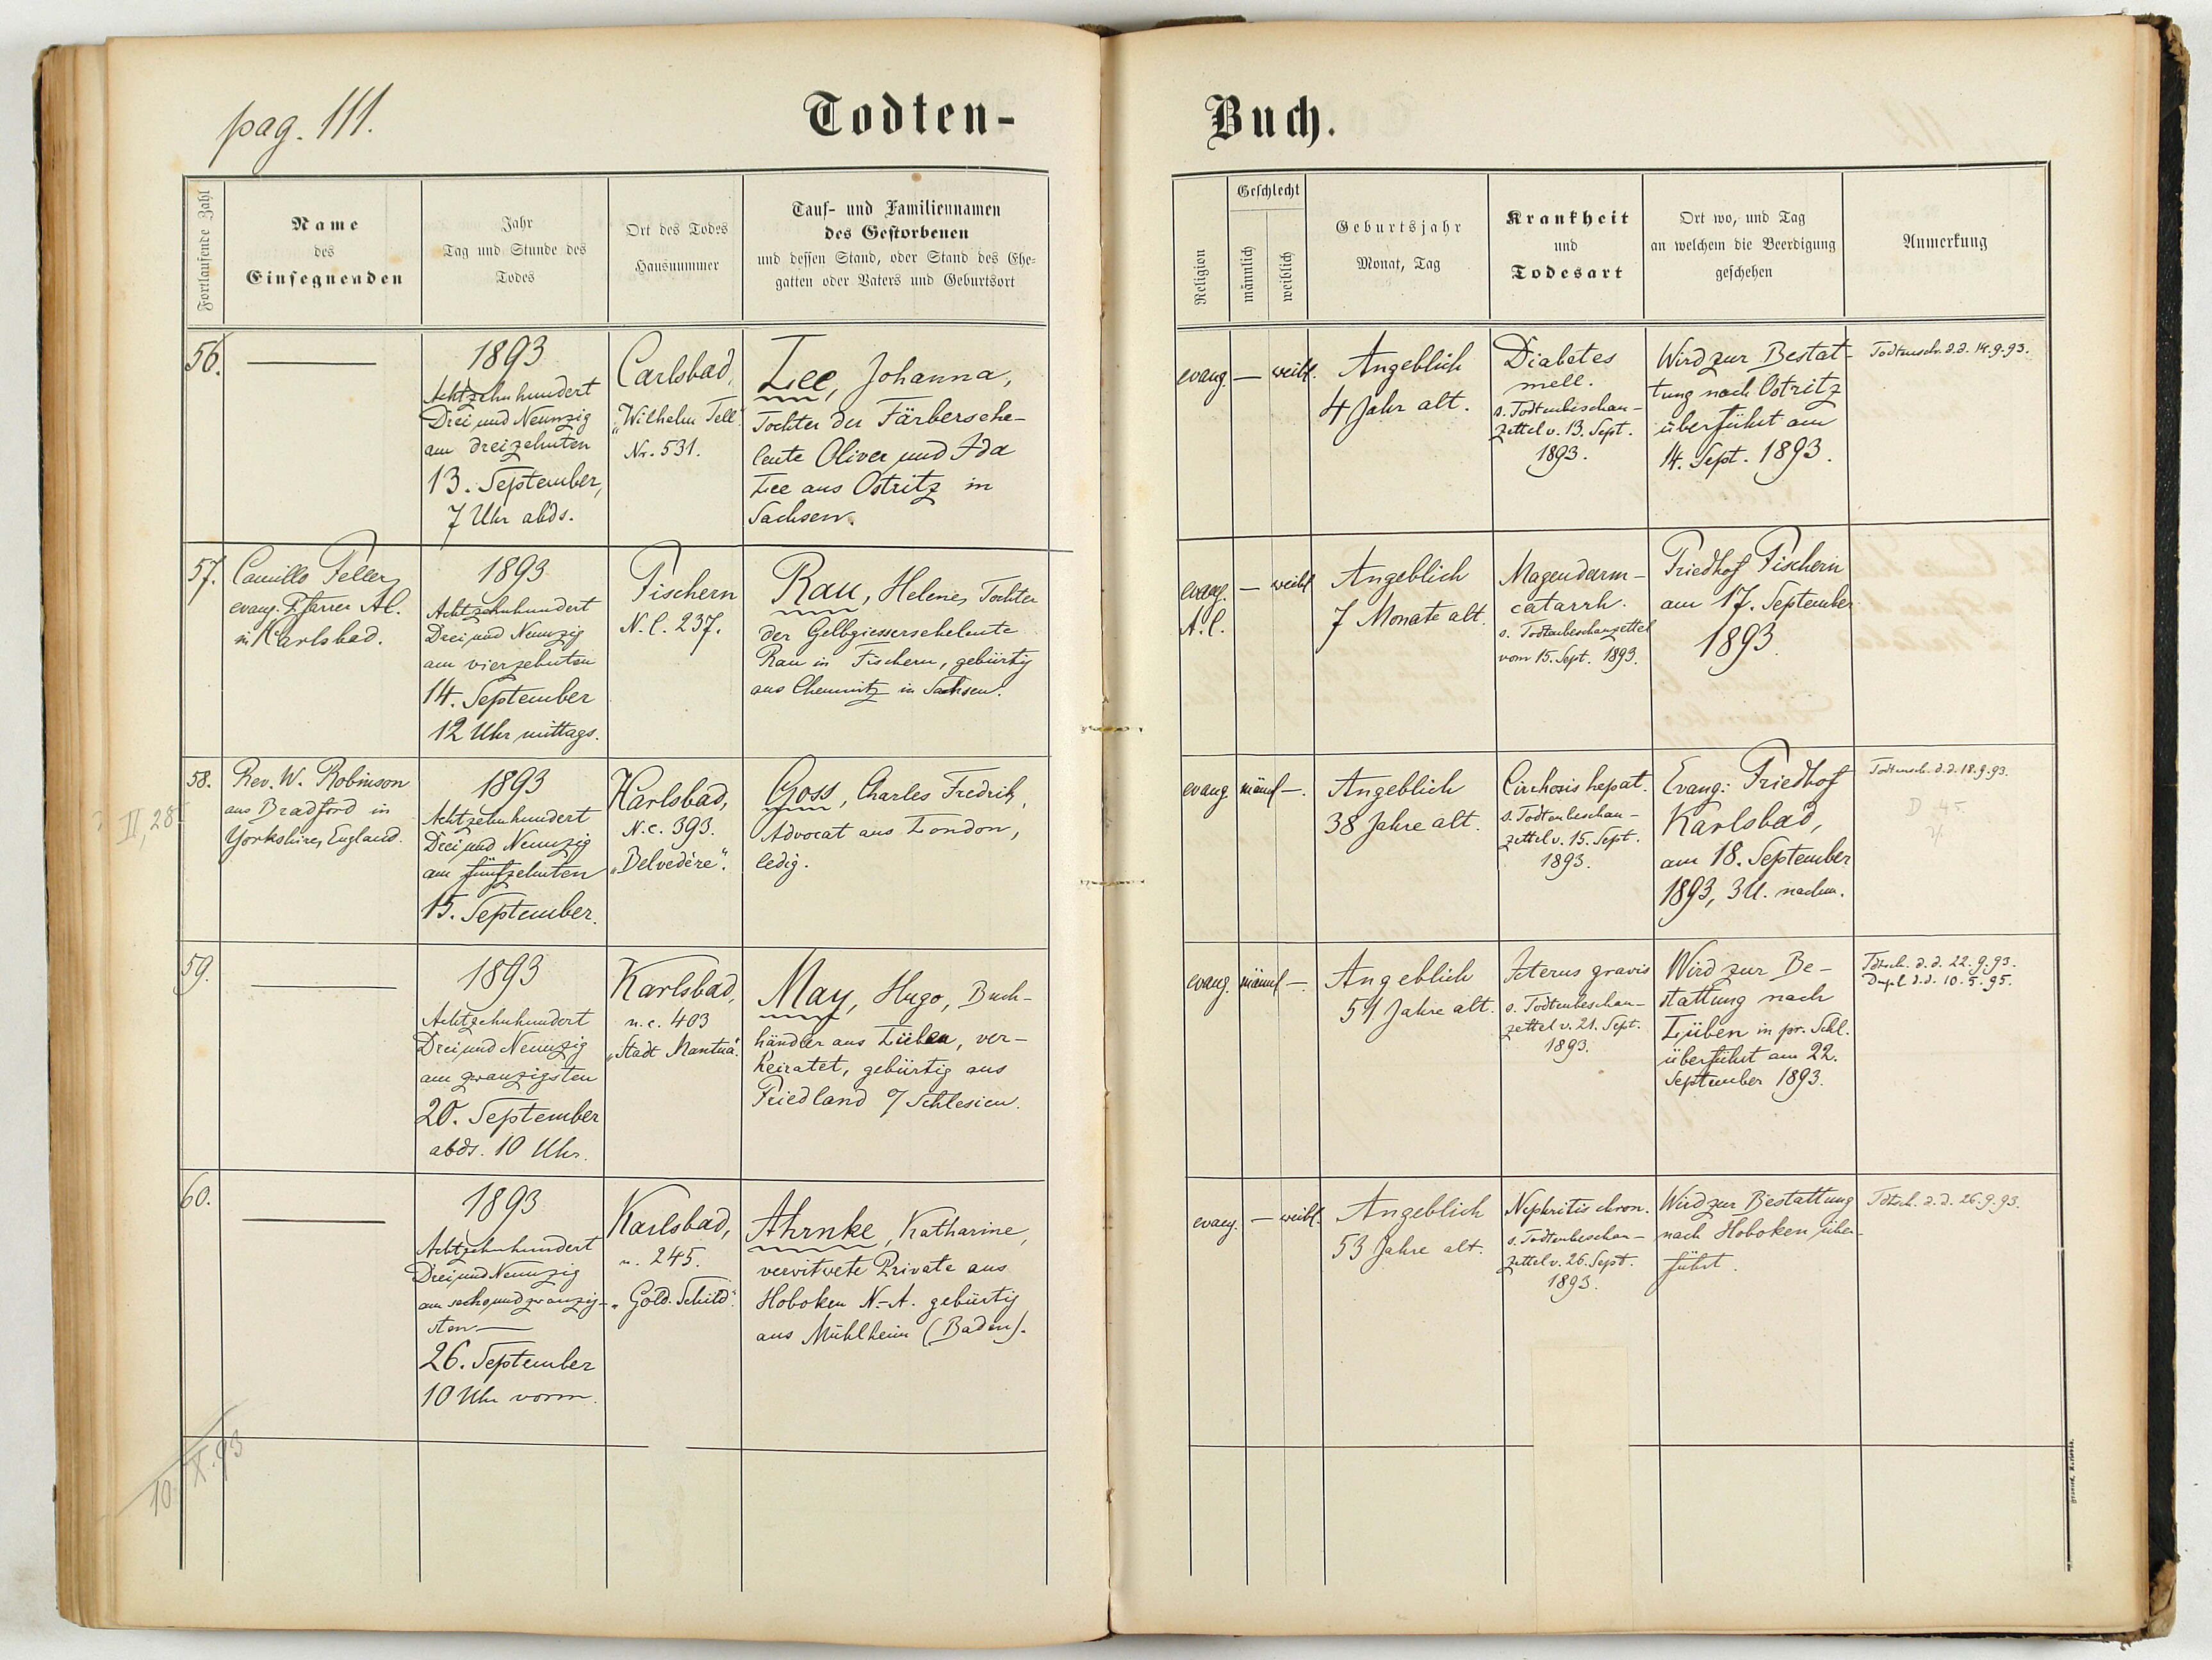 pag. 111.
Todten-
Buch.
Fortlaufende Zahl
Name
des
Einsegnenden
Jahr
Tag und Stunde des
Todes
Ort des Todes
Hausnummer
Tauf- und Familiennamen
des Gestorbenen
und dessen Stand, oder Stand des Ehe-
gatten oder Vaters und Geburtsort
Religion
Geschlecht
männlich
weiblich
Geburtsjahr
Monat, Tag
Krankheit
und
Todesart
Ort wo, und Tag
an welchem die Beerdigung
geschehen
Anmerkung
56.
1893
Achtzehnhundert
Drei und Neunzig
am dreizehnten
13. September,
7 Uhr abds.
Carlsbad,
"Wilhelm Tell"
Nr. 531.
Lee, Johanna,
Tochter der Färbersehe-
leute Oliver und Ida
Lee aus Ostritz in
Sachsen.
evang.
—
weibl.
Angeblich
4 Jahr alt.
Diabetes
mell.
s. Todtenbeschau-
zettel v. 13. Sept.
1893.
Wird zur Bestat-
tung nach Ostritz
überführt am
14. Sept. 1893.
Todtensch. d.d. 14.9.93.
57.
Camillo Feller,
evang. Pfarrer A.C.
in Karlsbad.
1893
Achtzehnhundert
Drei und Neunzig
am vierzehnten
14. September
12 Uhr mittags.
Fischern
N.C. 237.
Rau, Helene, Tochter
der Gelbgiessereheleute
Rau in Fischern, gebürtig
aus Chemnitz in Sachsen.
evang.
A.C.
—
weibl
Angeblich
7 Monate alt.
Magendarm-
catarrh.
s. Todtenbeschauzettel
vom 15. Sept. 1893.
Friedhof Fischern
am 17. September
1893.
58.
II, 28
Rev. W. Robinson
aus Bradford in
Yorkshire, England.
1893
Achtzehnhundert
Drei und Neunzig
am fünfzehnten
15. September.
Karlsbad,
N.c. 393.
"Belvedère".
Goss, Charles Fredrik,
Advocat aus London,
ledig.
evang.
männl
—.
Angeblich
38 Jahre alt.
Cirrhosis hepat.
s. Todtenbeschau-
zettel v. 15. Sept.
1893.
Evang: Friedhof
Karlsbad,
am 18. September
1893, 3 U. nachm.
Todtensch. d.d. 18.9.93.
D 45.
59.
1893
Achtzehnhundert
Drei und Neunzig
am zwanzigsten
20. September
abds. 10 Uhr.
Karlsbad,
n.c. 403
"Stadt Mantua".
May, Hugo, Buch-
händler aus Lüben, ver-
heiratet, gebürtig aus
Friedland o/ Schlesien.
evang.
männl
—.
Angeblich
51 Jahre alt.
Icterus gravis
s. Todtenbeschau-
zettel v. 21. Sept.
1893.
Wird zur Be-
stattung nach
Lüben in pr. Schl.
überführt am 22.
September 1893.
Tdtsch. d.d. 22.9.93.
Dupl. d.d. 10.5.95.
60.
1893
Achtzehnhundert
Drei und Neunzig
am sechsundzwanzig-
sten —
26. September
10 Uhr vorm.
Karlsbad,
n. 245.
"Gold. Schild".
Ahrnke, Katharine,
verwitwete Private aus
Hoboken N.-A. gebürtig
aus Mühlheim (Baden).
evang.
—
weibl.
Angeblich
53 Jahre alt.
Nephritis chron.
s. Todtenbeschau-
zettel v. 26. Sept.
1893.
Wird zur Bestattung
nach Hoboken über-
führt.
Tdtsch. d.d. 26.9.93.
10. X. 93